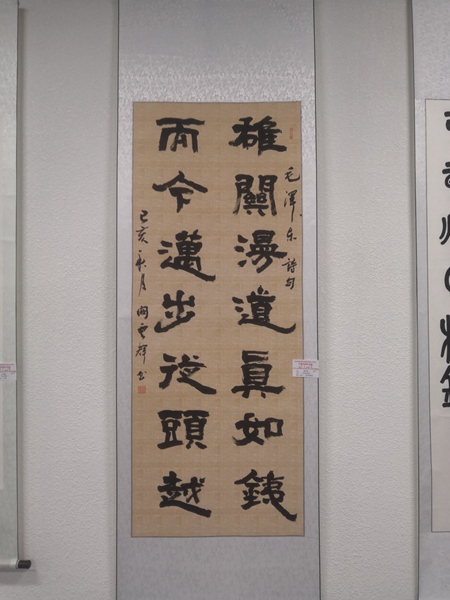 雄關漫道眞如銕
毛澤东 詩句
而今邁步從頭越
己亥秋月